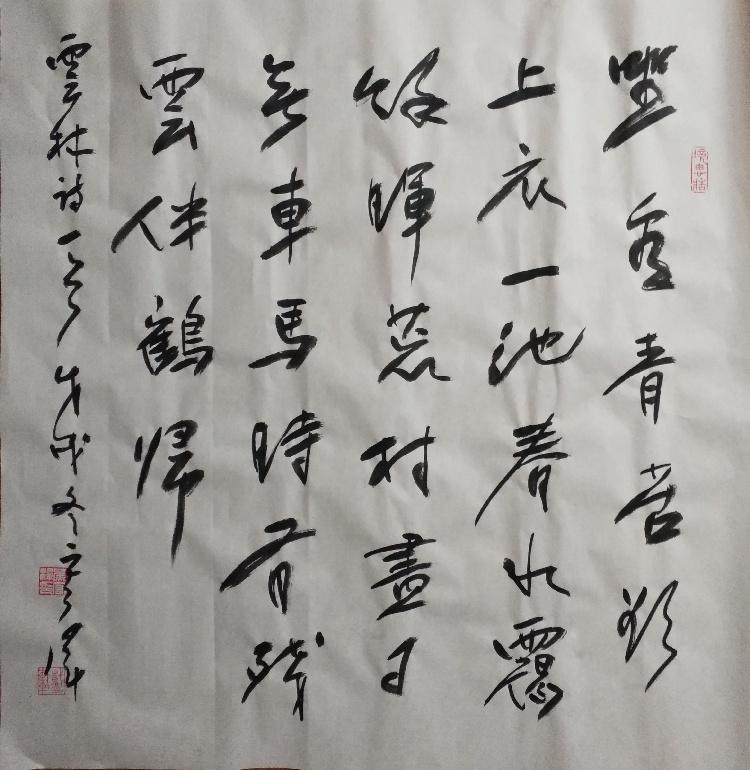 坐看青苔欲
上衣一池春水靄
餘暉荒村盡日
無車馬時有殘
雲伴鶴歸
雲林詩一首戊戌冬